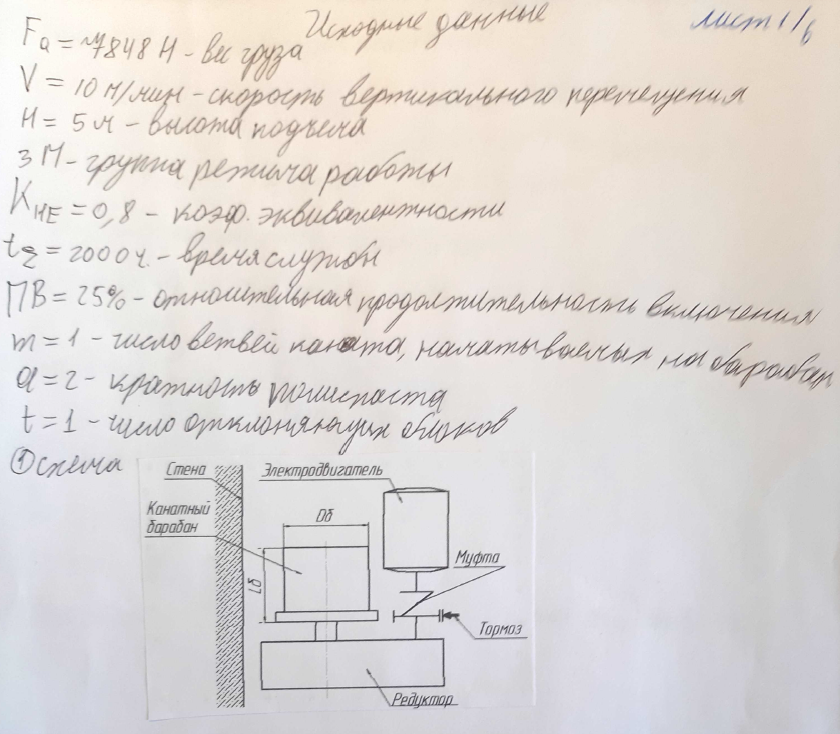 Исходные данные
лист 1/6
FQ = ~7848 Н - вес груза
V = 10 м/мин - скорость вертикального перемещения
H = 5 м - высота подъема
3М - группа режима работы
KHE = 0,8 - коэф. эквивалентности
tΣ = 2000 ч. - время службы
ПВ = 25% - относительная продолжительность включения
m = 1 - число ветвей каната, наматываемых на барабан
a = 2 - кратность полиспаста
t = 1 - число отклоняющих блоков
① схема
Стена
Электродвигатель
Канатный
барабан
Dб
Lб
Муфта
Тормоз
Редуктор